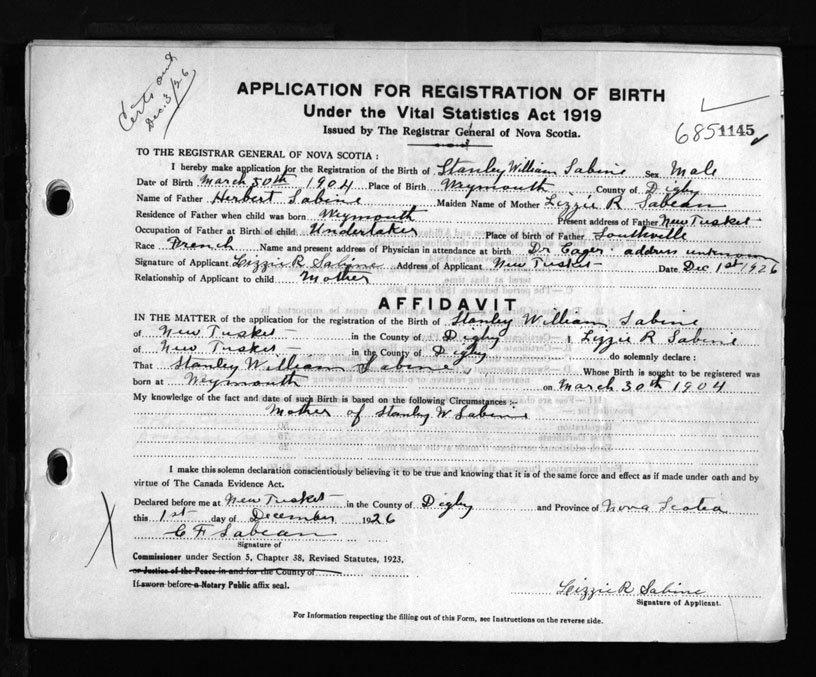 Certs out
Dec. 3/26
APPLICATION FOR REGISTRATION OF BIRTH
Under the Vital Statistics Act 1919
Issued by The Registrar General of Nova Scotia.
685 1145
TO THE REGISTRAR GENERAL OF NOVA SCOTIA :
I hereby make application for the Registration of the Birth of Stanley William Sabine Sex Male
Date of Birth March 30th 1904 Place of Birth Weymouth County of Digby
Name of Father Herbert Sabine Maiden Name of Mother Lizzie R Sabean
Residence of Father when child was born Weymouth Present address of Father New Tusket
Occupation of Father at Birth of child Undertaker Place of birth of Father Southville
Race French Name and present address of Physician in attendance at birth Dr Eager : address unknown
Signature of Applicant Lizzie R Sabine Address of Applicant New Tusket Date Dec 1st 1926
Relationship of Applicant to child Mother
AFFIDAVIT
IN THE MATTER of the application for the registration of the Birth of Stanley William Sabine
of New Tusket in the County of Digby I, Lizzie R Sabine
of New Tusket in the County of Digby do solemnly declare :
That Stanley William Sabine, Whose Birth is sought to be registered was
born at Weymouth on March 30th 1904
My knowledge of the fact and date of such Birth is based on the following Circumstances :-
Mother of Stanley W Sabine
I make this solemn declaration conscientiously believing it to be true and knowing that it is of the same force and effect as if made under oath and by
virtue of The Canada Evidence Act.
Declared before me at New Tusket in the County of Digby and Province of Nova Scotia
this 1st day of December 1926
C F Sabean
Signature of
Commissioner under Section 5, Chapter 38, Revised Statutes, 1923,
or Justice of the Peace in and for the County of
If sworn before a Notary Public affix seal.
Lizzie R Sabine
Signature of Applicant.
For Information respecting the filling out of this Form, see Instructions on the reverse side.